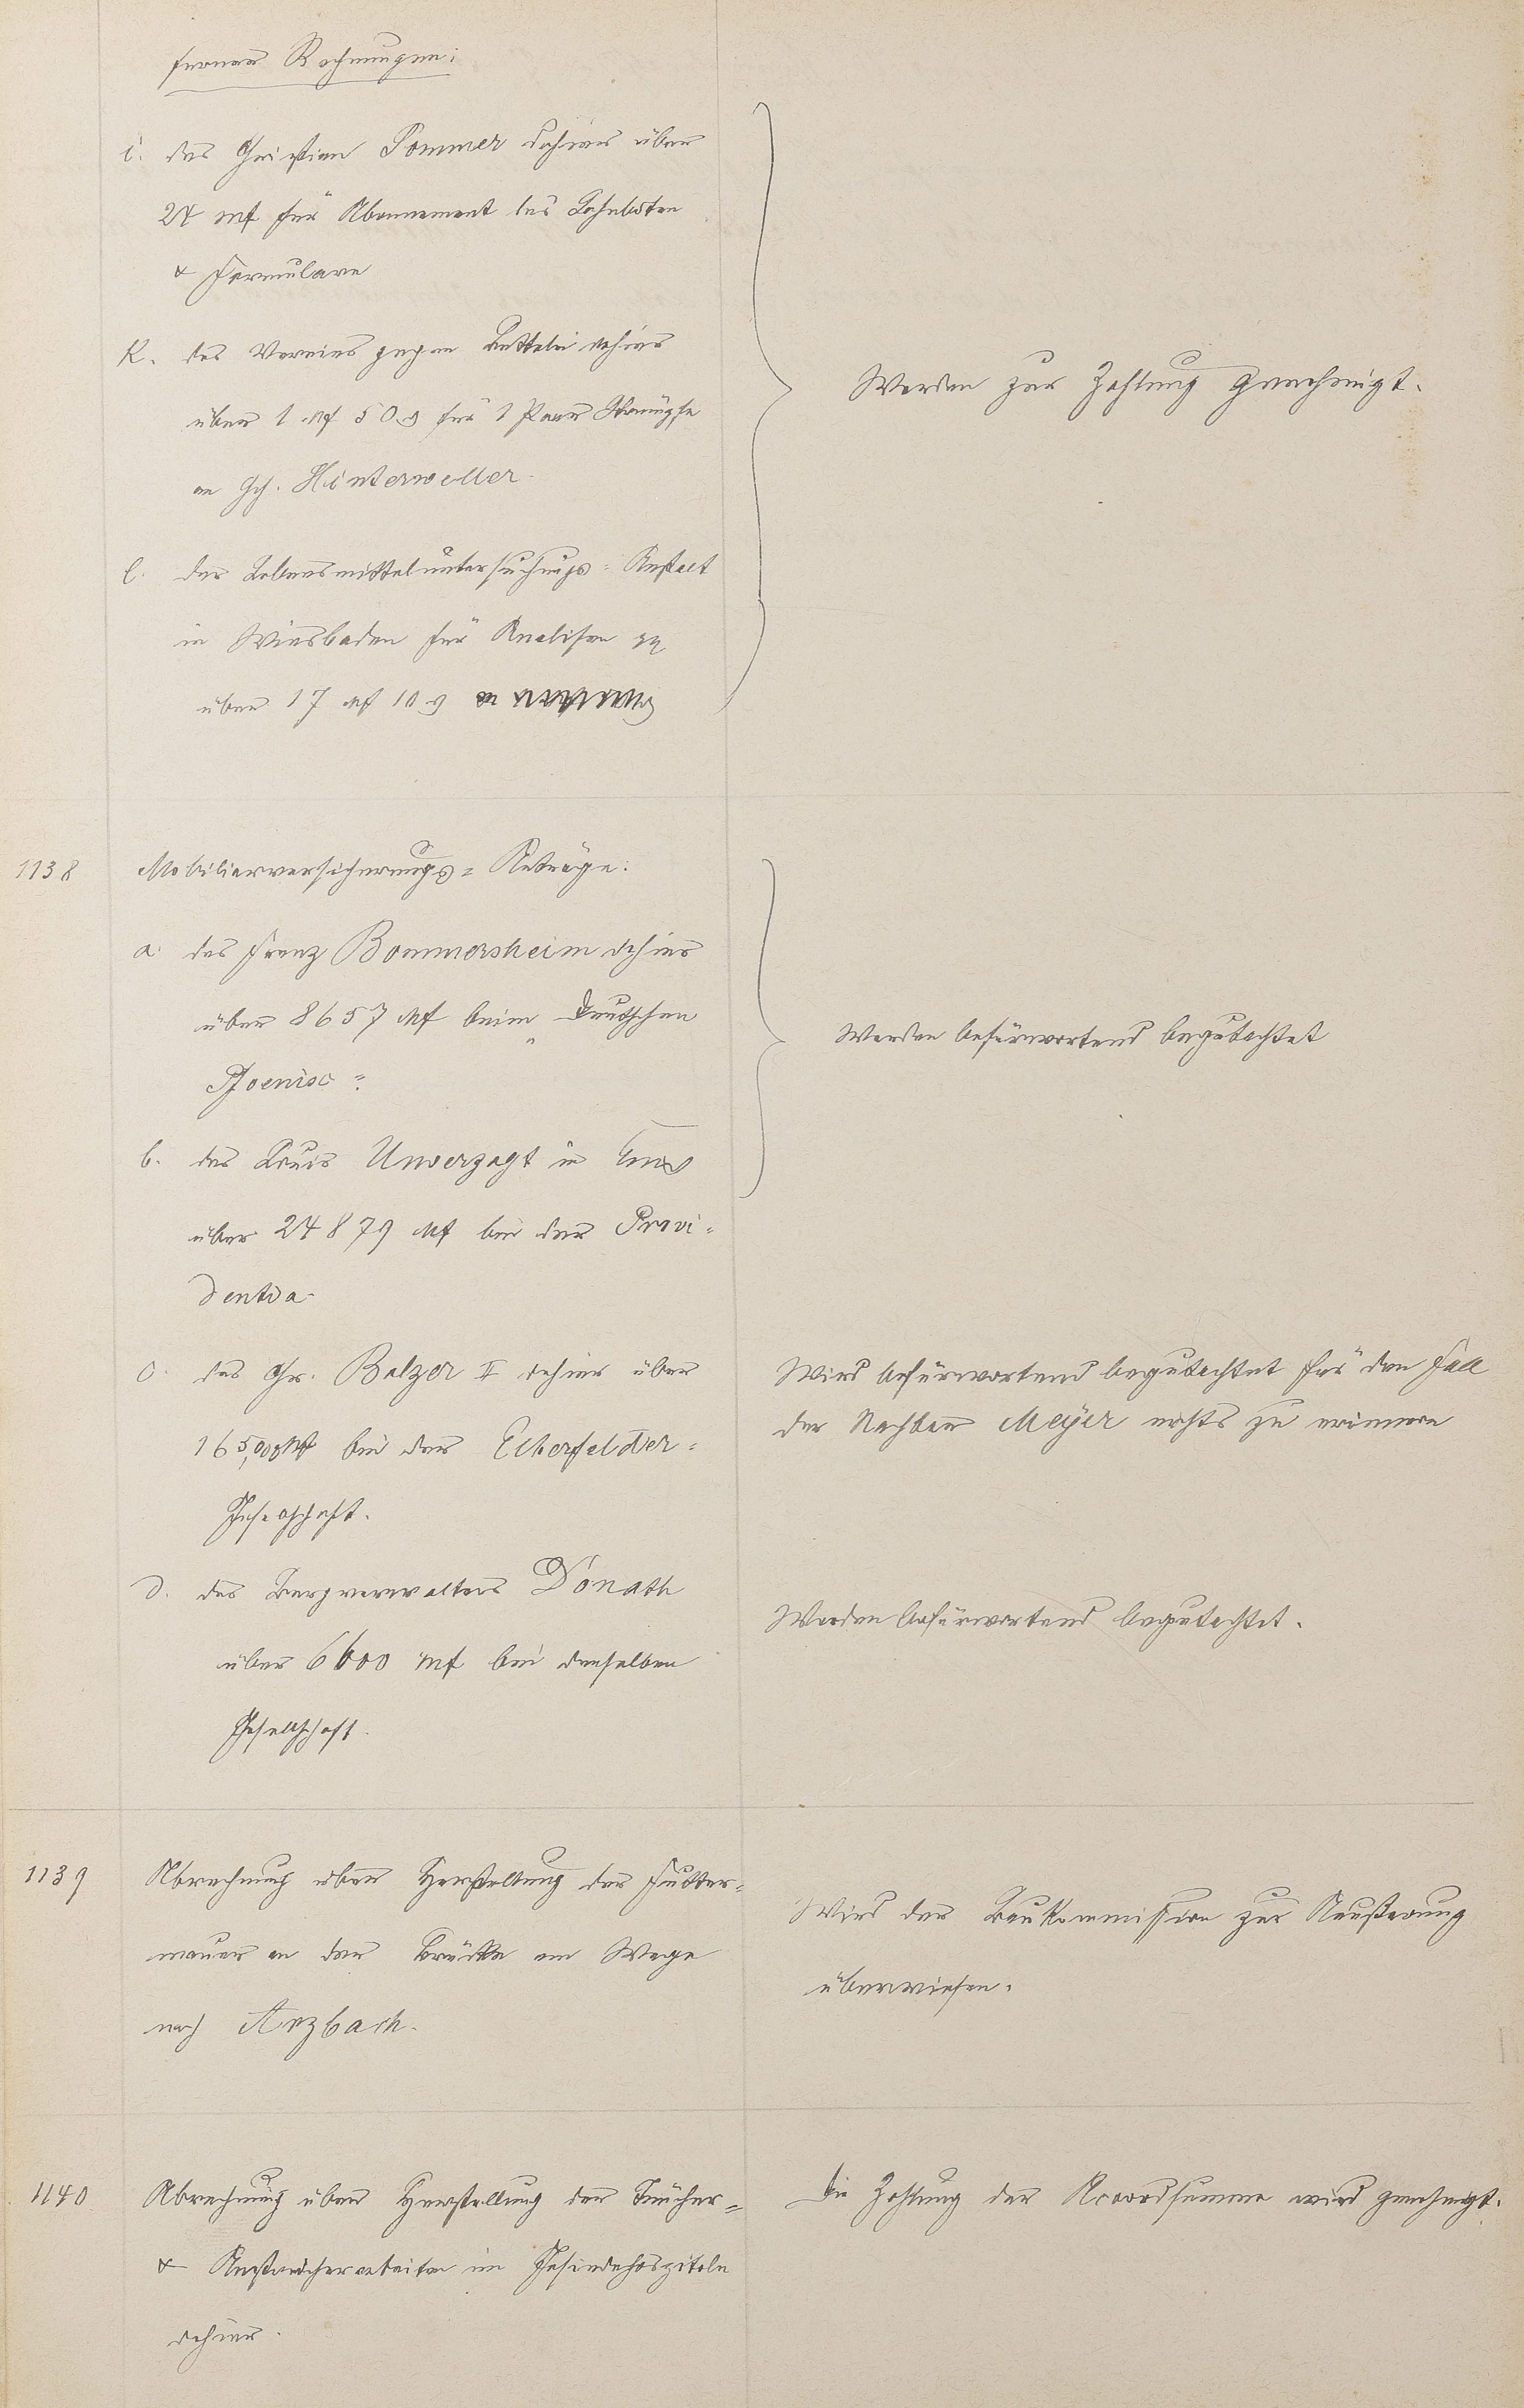 ferner Rechnungen:
i. des Christian Sommer dahier über
24 Mk für Abonnement des Lahnboten
& Formulare
k. des Vereins gegen Bettelei dahier
über 1 Mk 50 ₰ für 1 Paar Strümpfe
an Hch. Hinterweller.
l. der Lebensmitteluntersuchungs=Anstalt
in Wiesbaden für Analisen pp
über 17 Mk 10 ₰
Werden zur Zahlung genehmigt.
1138
Mobiliarversicherungs=Anträge:
a. des Franz Bommersheim dahier
über 8657 Mk beim „Deutschen
Phoenix"
b. des Louis Unverzagt in Ems
über 24879 Mk bei der Provi-
dentia.
Werden befürwortend begutachtet
c. des Chr. Balzer II dahier über
165,000 Mk bei der Elberfelder-
Gesellschaft.
Wird befürwortend begutachtet für den Fall
der Nachbar Meyer nichts zu erinnern
d. des Bergverwalters Donath
über 6600 Mk bei derselben
Gesellschaft.
Werden befürwortend begutachtet.
1139
Abrechnung über Herstellung der Futter=
mauer an der Brücke am Wege
nach Arzbach.
Wird der Baukommission zur Aeußerung
überwiesen.
1140
Abrechnung über Herstellung der Tüncher=
& Anstreicherarbeiten im Gesindehospitale
dahier.
Die Zahlung der Accordsumme wird genehmigt.